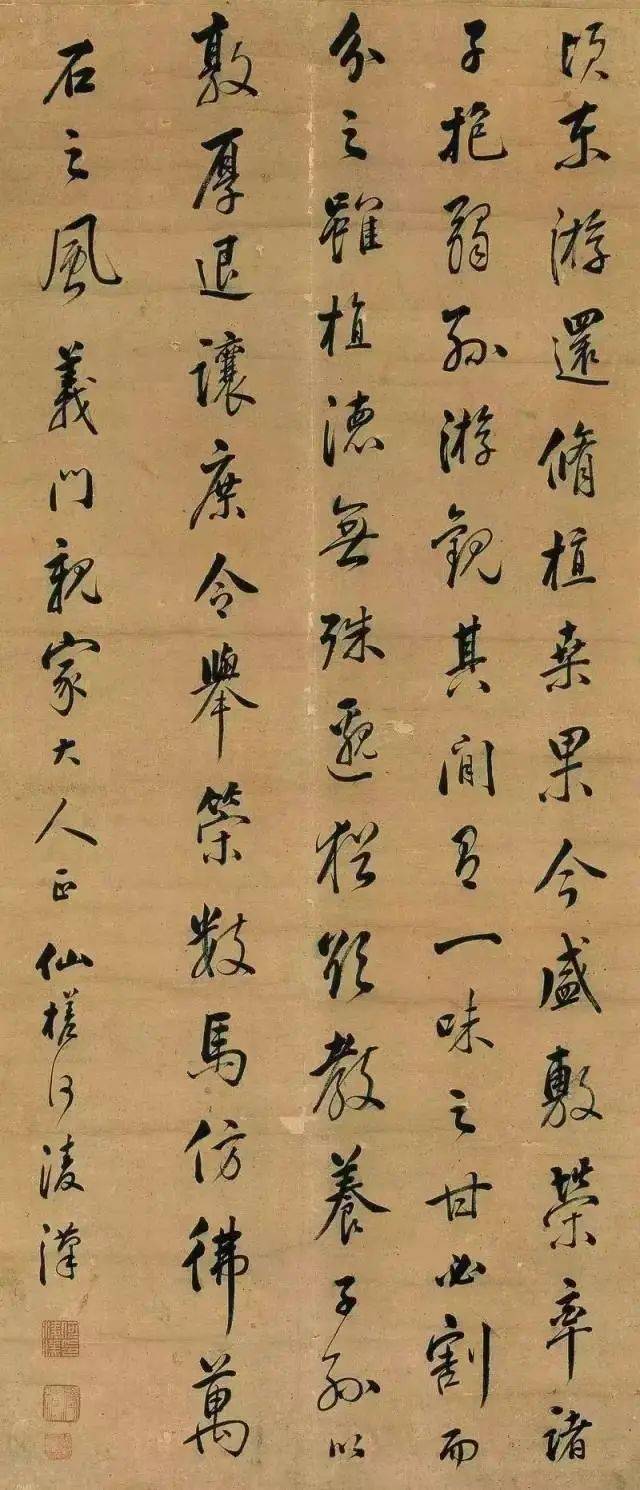 頃東游還脩植桑果今盛敷榮率諸
子抱弱孫游觀其間有一味之甘必割而
分之雖植德無殊邈猶欲教養子孫以
敦厚退讓庶令舉策數馬仿佛萬
石之風 義門親家大人正 仙槎何淩漢